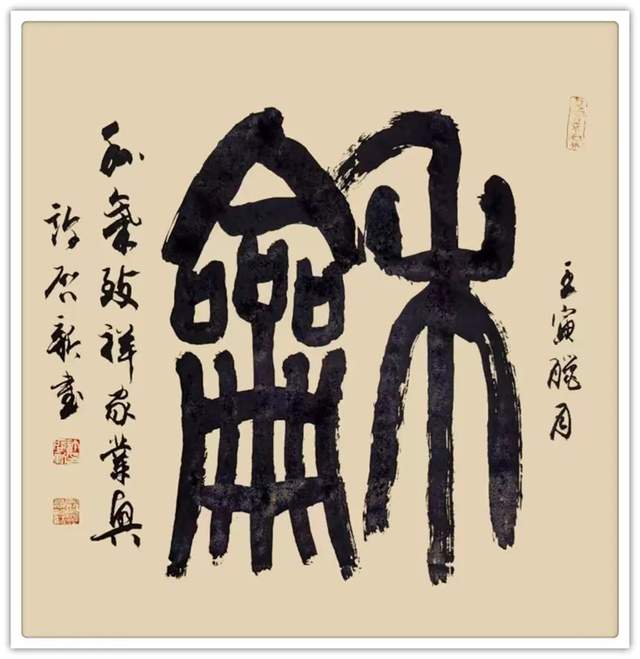 壬寅臘月
龢
和氣致祥家業興
許启新書